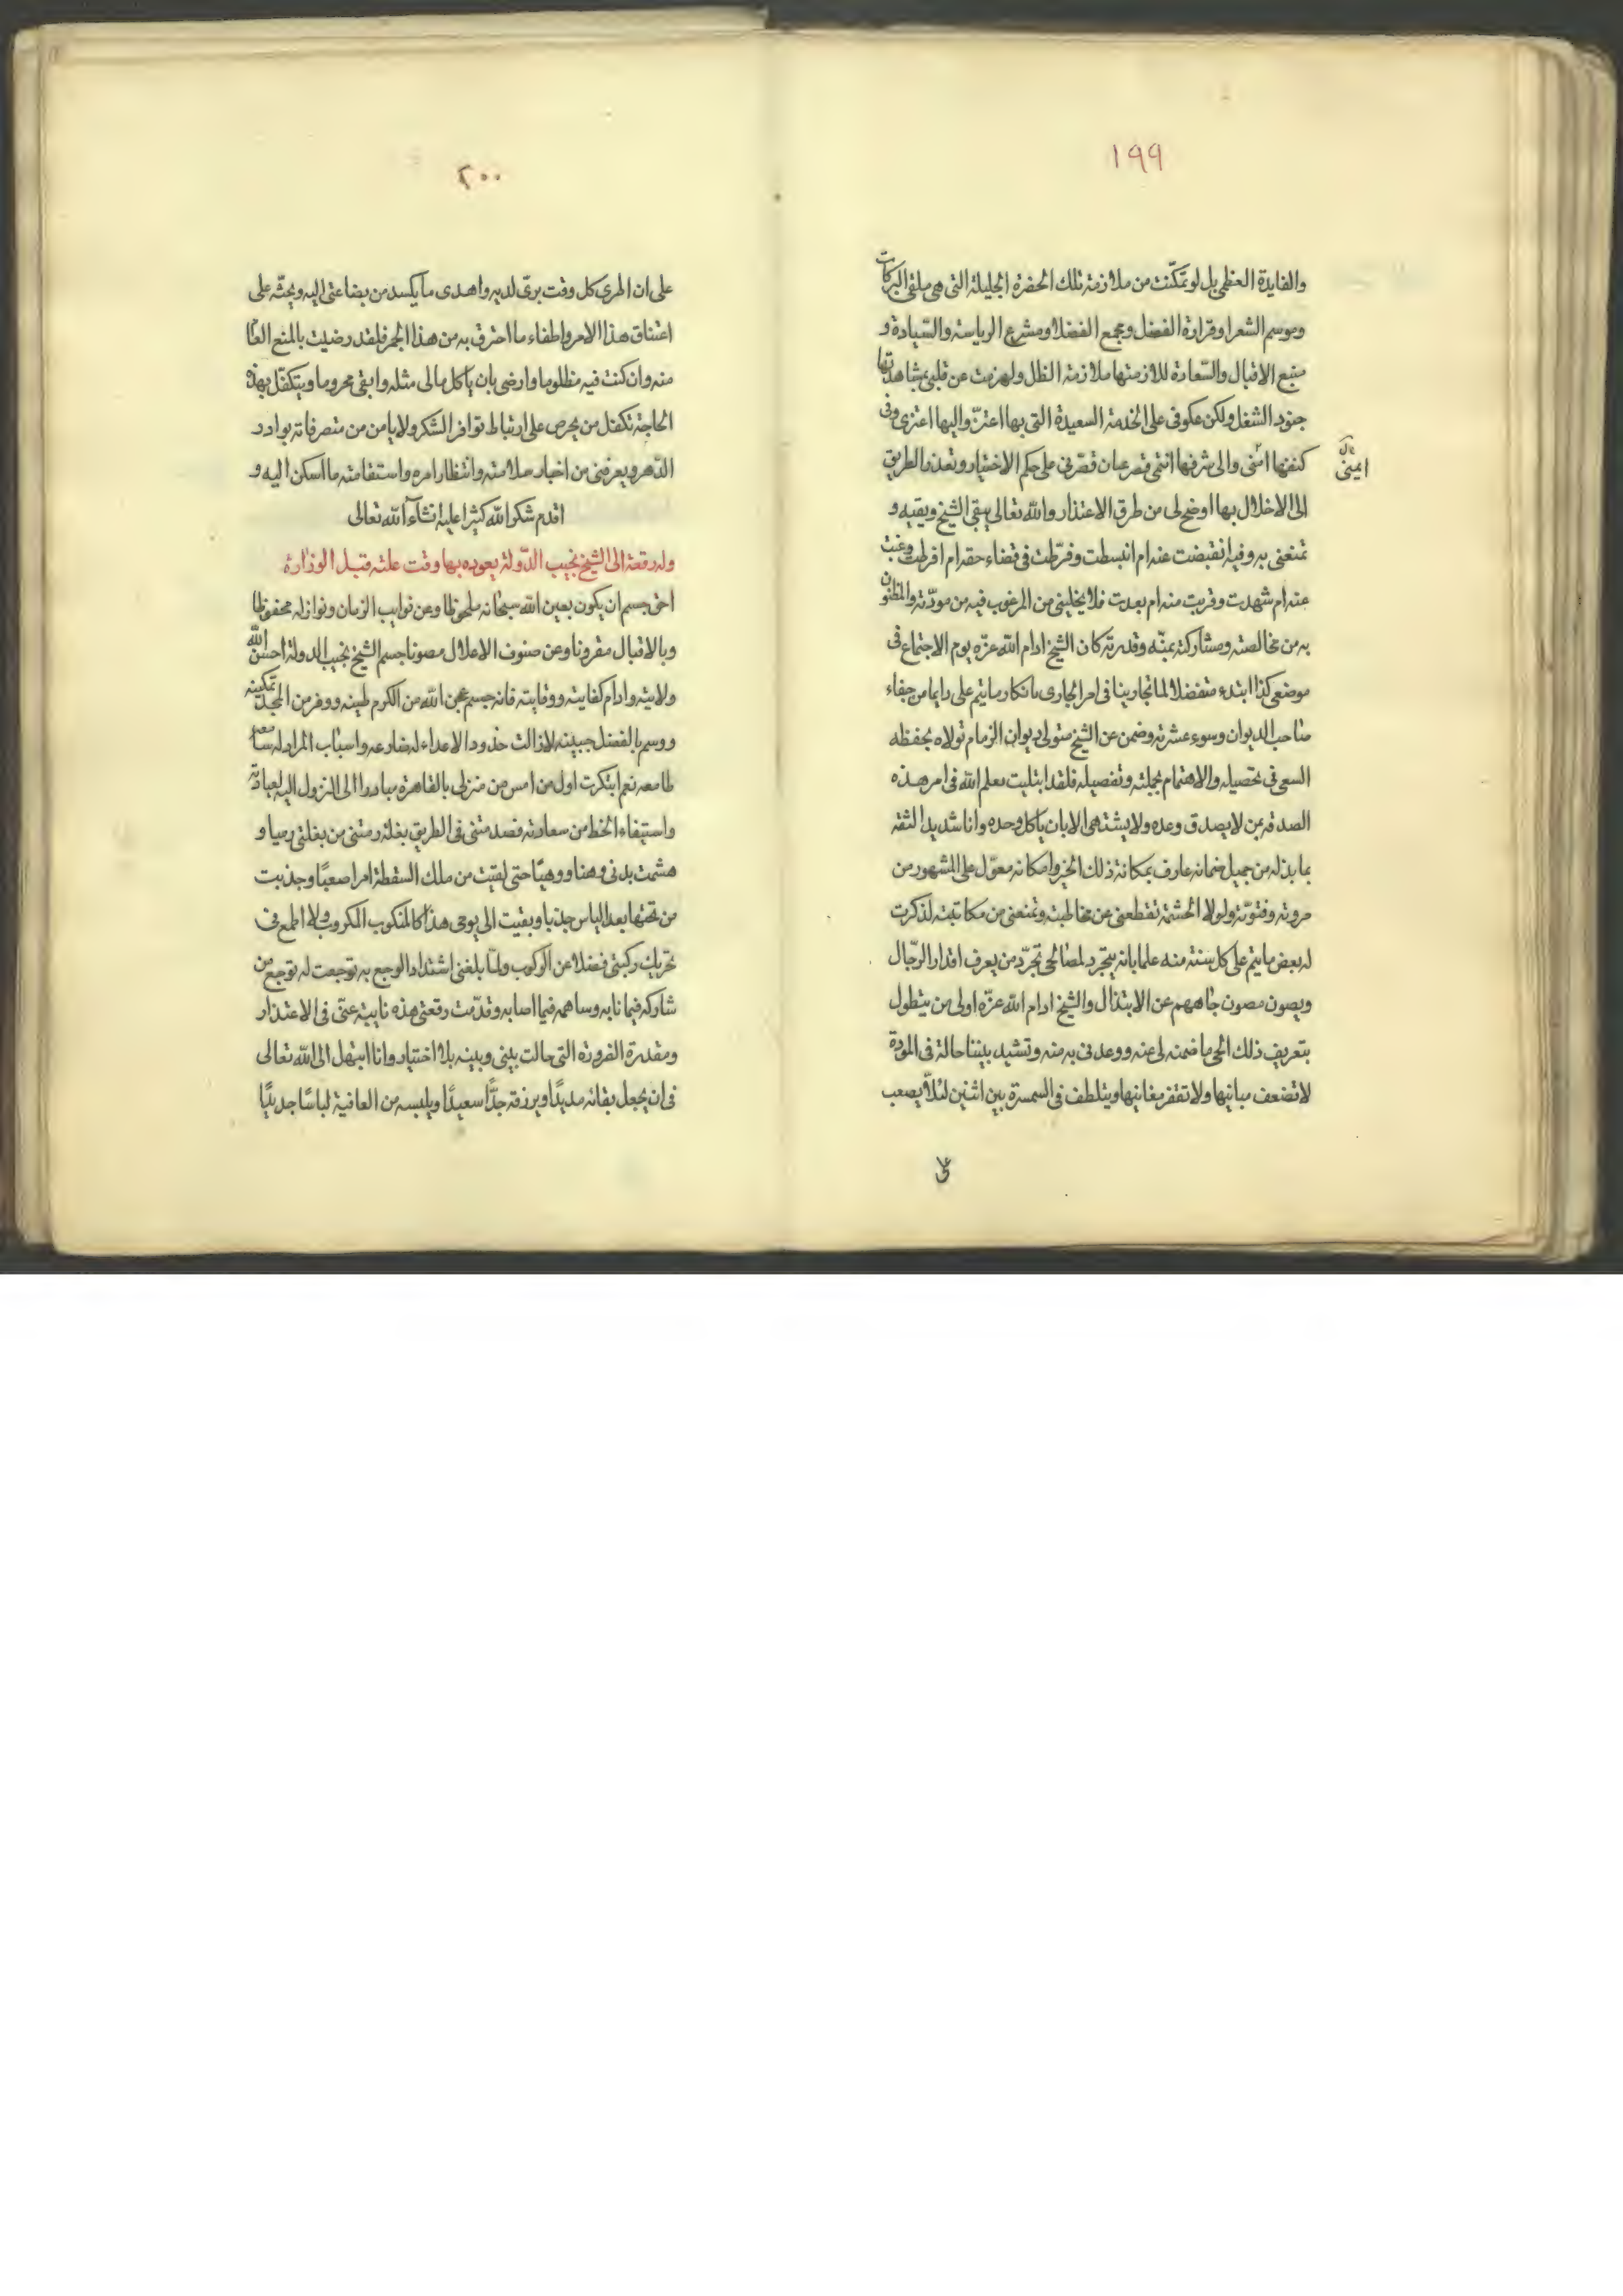 ١٩٩
والفايدة العظمى بل لو تمكّنت من ملازمة تلك الحضرة الجليلة التى هى ملقى البركات
وموسم الشعرا وقرارة الفضل ومجمع الفضلا ومشرع الرياسة والسّيادة و
منبع الاقبال والسّعادة للازمتها ملازمة الظل ولهزمت عن قلبى بمشاهدتها
جنود الشغل ولكن عكوفى على الخدمة السعيدة التى بها اعتزّ واليها اعتزى وفى
كنفها امنى والى شرفها انتمى قصر عيان قصرنى على حكم الاختيار وتعذر الطريق
ايمنى
الى الاخلال بها اوضح لى من طرق الاعتذار والله تعالى يبقى الشيخ ويقيه و
تمتعنى به وفيه انقبضت عنه ام انبسطت وفرّطت فى قضاء حقه ام افرطت وغبت
عنه ام شهدت وقربت منه ام بعدت فلا يخلينى من المرغوب فيه من مودّته والمظنون
به من مخالصته ومشاركته بمنّه وقدرته كان الشيخ ادام الله عزّه يوم الاجتماع فى
موضع كذا ابتدء متفضلا لما تجارينا فى امر الجارى بانكار ما يتم على دايما من جفاء
صاحب الديوان وسوء عشرته وضمن عن الشيخ متولى ديوان الزمام تولاه بحفظه
السعى فى تحصيله والاهتمام بجملته وتفصيله فلقد ابتليت معلم الله فى امر هذه
الصدقه بمن لا يصدق وعده ولا يشتهى الا بان ياكل وحده وانا شديد الثقه
بما بذله من جميل ضمانه عارف بمكانة ذلك الخير وامكانه معوّل على المشهور من
مروته وفتوّته ولولا الحشمة تقطعنى عن مخاطبته وتمنعنى من مكاتبته لذكرت
له بعض ما يتم على كل سنة منه علما بانه يتجرد لمصالحى تجرّد من يعرف اقدار الرّجال
ويصون مصون جاههم عن الابتذال والشيخ ادام الله عزّه اولى من يتطول
بتعريف ذلك الخ ما ضمنه لى عنه ووعدنى به منه وتشيد بيننا حالة فى المودة
لا تضعف مبانيها ولا تقفر مغانيها ويتلطف فى السمسرة بين اثنين لئلّا يصعب
على
٢٠٠
على ان المرى كل وقت برى لديه واهدى ما يكسد من بضاعتى اليه ويحثّه على
اعتناق هذا الامر واطفاء ما احترق به من هذا الجمر فلقد رضيت بالمنع العا
منه وان كنت فيه مظلوما وارضى بان ياكل مالى مثله وابقى محروما ويتكفّل بهذه
الحاجة تكفل من يحرص على ارتباط نوافر الشكر ولا يامن من متصرفاته بوادر
الدّهر ويعرفنى من اخبار سلامته وانتظار امره واستقامته ما اسكن اليه و
اقدم شكر الله كثيرا عليه انشآء الله تعالى
وله رقعة الى الشيخ نجيب الدّولة يعوده بها وقت علته قبل الوزارة
احق جسم ان يكون بعين الله سبحانه ملحوظا وعن نوايب الزمان ونوازله محفوظا
وبالاقبال مقرونا وعن صنوف الاعلال مصونا جسم الشيخ نجيب الدولة احسن الله
ولايته وادام كفايته ووقايته فانه جسم عجن الله من الكرم طينه ووفر من المجد تمكينه
ووسم بالفضل جبينه لا زالت خدود الاعداء له ضارعه واسباب المراد له
طامعه نعم ابتكرت اول من امس من منزلى بالقاهرة مبادرا الى النزول اليه لعيادته
واستيفاء الحظ من سعادته فصدمتنى فى الطريق بغلة رمتنى من بغلتى رميا و
هشمت بدنى وهنا ووهيًا حتى لقيت من تلك السقطة امرا صعبًا وجذبت
من تحتها بعد الياس جذبا وبقيت الى يومى هذا كالمنكوب المكروب ولا اطمع فى
تحريك ركبتى فضلا عن الركوب ولمّا بلغنى اشتداد الوجع به توجعت له توجع من
شاركه فيما نابه وساهمه فيما اصابه وقدّمت رقعتى هذه نايبة عنّى فى الاعتذار
ومقدرة الضرورة التى حالت بينى وبينه بلا اختيار وانا ابتهل الى الله تعالى
فى ان يجعل بقائه مديدًا ويرزقه جدًّا سعيدًا ويلبسه من العافية لباسًا جديدًا